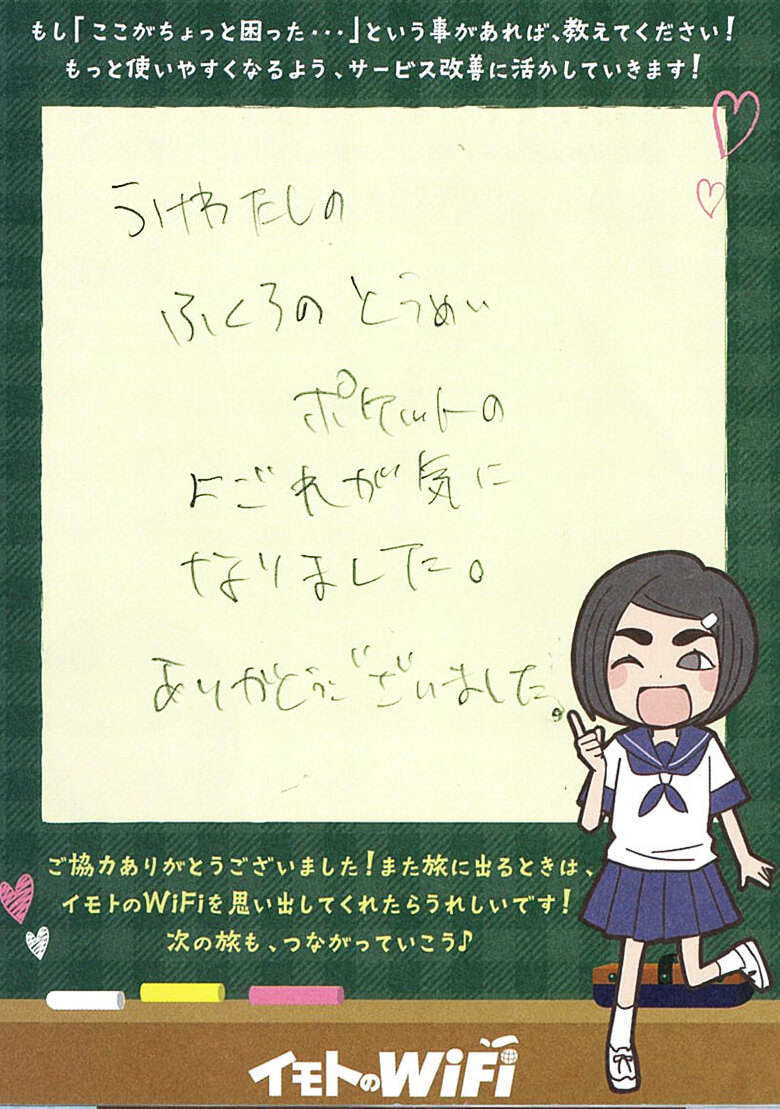 もし「ここがちょっと困った・・・」という事があれば、教えてください!
もっと使いやすくなるよう、サービス改善に活かしていきます!
うけわたしの
ふくろの とうめい
ポケットの
よごれが気に
なりました。
ありがとうございました。
ご協力ありがとうございました!また旅に出るときは、
イモトのWiFiを思い出してくれたらうれしいです!
次の旅も、つながっていこう♪
イモトのWiFi